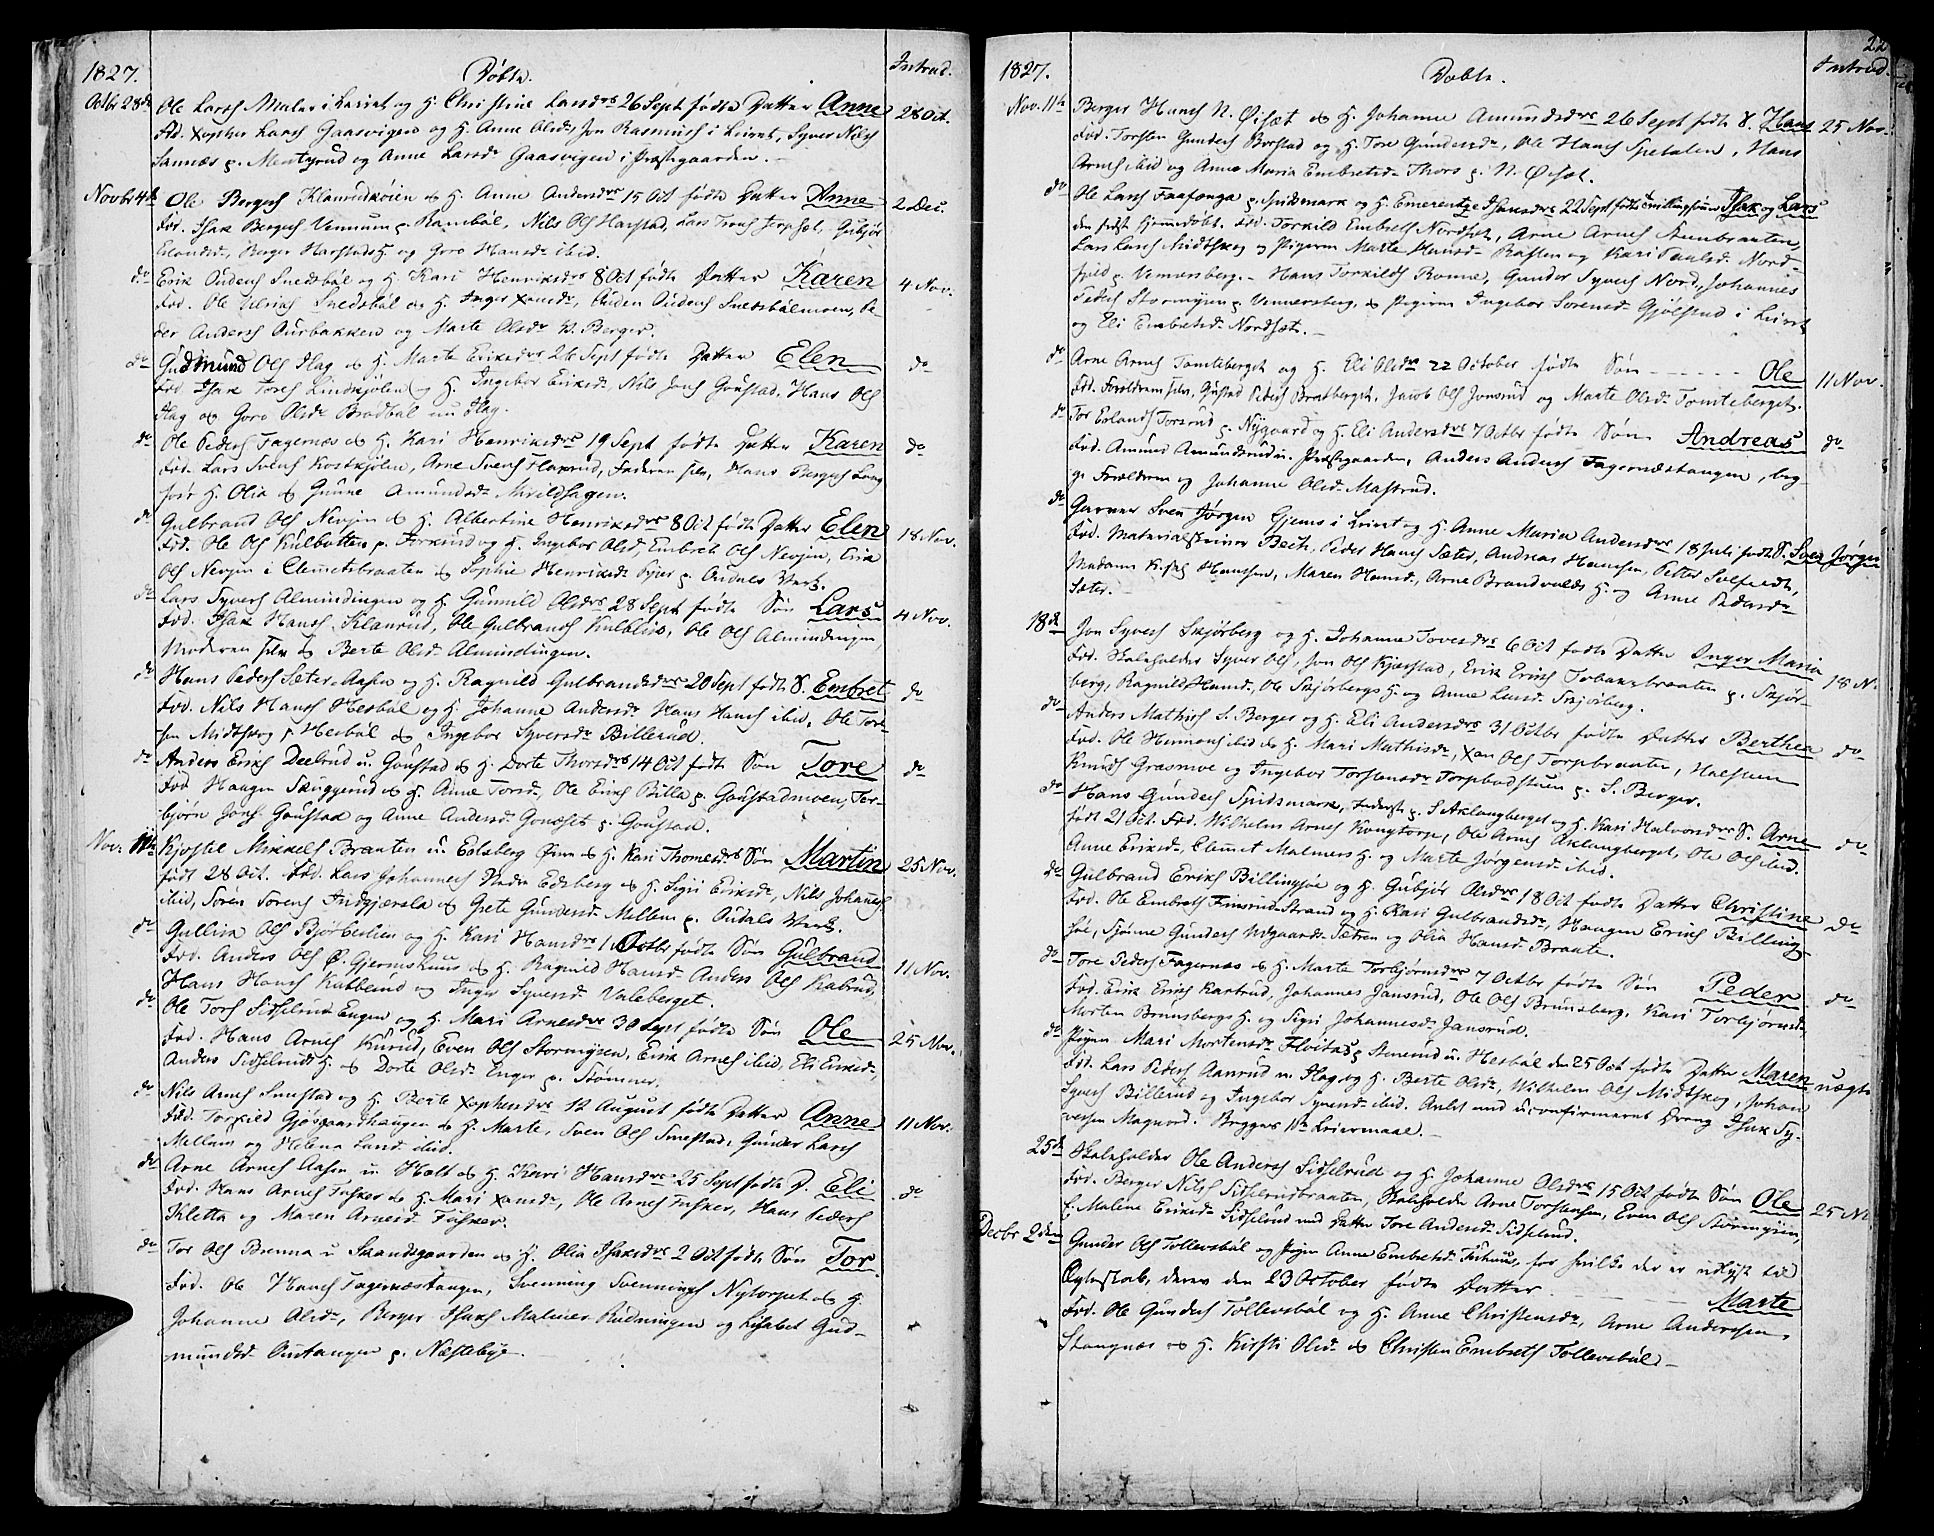 1827. Døbte. Introd.
Octbr 28de Ole Larss Maler i Leiret og H. Christine Larsdrs 26 Sept fødte Datter Anne 28 Oct.
Fad. Xopher Larss Gaasvigen og H. Anne Olsdr, Jon Rasmuss i Leiret, Syver Nilss
Sannæs p. Mentzrud og Anne Larsdr Gaasvigen i Præstegaarden.
Novbr 4de Ole Bergers Klanridkøien og H. Anne Andersdrs 15 Oct fødte Datter Anne 2 Dec.
Fad. Isak Bergers Vennum p. Rambøl, Nils Ols Harstad, Lars Trons Jerpset, Gubjør
Erlandsdr, Berger Harstads H. og Goro Hansdr ibid.
do Erik Audens Snedsbøl og H. Kari Henriksdrs 8 Oct fødte Datter Karen 4 Nov.
Fad. Ole Ulrichs Snedsbøl og H. Inger Xansdr, Auden Audens Snedsbølmoen, Pe-
der Anderss Aurbakken og Marte Olsdr N. Berger.
do Gudmund Ols Hag og H. Marte Eriksdrs 26 Sept fødte Datter Elen do
Fad. Isak Tores Lindkjølen og H. Ingebor Eriksdr Nils Jons Goustad, Hans Ols
Hag og Goro Olsdr Brødbøl nu Hag.
do Ole Peders Fagernæs og H. Kari Henriksdrs 19 Sept fødte Datter Karen do
Fad. Lars Svens Kostkjølen, Arne Svens Flaxrud, Faderen selv, Hans Bergers Lang
H. Olia og Gunne Amundsdr Mvildhagen.
do Gulbrand Ols Nevjen og H. Albertine Henriksdrs 8 Oct fødte Datter Elen 18 Nov.
Fad. Ole Ols Kulbotten p. og H. Ingebor Olsd, Embret Ols Nevjen, Erik
Ols Nevjen i Clemetsbraaten og Sophie Henriksdr p. Oudals Værk.
do Lars Syvers Almindingen og H. Gunnild Olsdrs 28 Sept fødte Søn Lars 4 Nov.
Fad. Isak Hans Klanrud, Ole Gulbrands Kulblik, Ole Ols Almindingen,
Moderen selv og Berte Olsdr Almindingen.
do Hans Peders Sæter-Aasen og H. Ragnild Gulbrandsdrs 20 Sept fødte S. Embret do
Fad. Nils Hans Hesbøl og H. Johanne Andersdr Hans Hans ibid, Ole Tore-
sen Midtskog p. Hesbøl og Ingebor Syversdr Billerud.
do Anders Eriks Deelrud u. Goustad og H. Dorte Thorsdrs 14 Oct fødte Søn Tore do
Fad. Haagen Skuggerud og H. Anne Torsd, Ole Eriks Billa p. Goustadmoen, Tor-
bjørn Jons Goustad og Anne Andersd Gonæset p. Goustad.
Nov. 11te Kjostel Mikkels Braaten u. Edsberg Øvre og H. Kari Thomesdrs Søn Martin 25 Nov.
født 28 Oct. Fad. Lars Johannes Nedre Edsberg og H. Sigri Eriksdr, Nils Johannes
ibid, Søren Sørens Indgjersla og Grete Gundersd Mellem p. Oudals Værk.
do Gullik Ols Bjørberlien og H. Kari Hansdrs 1 Octbr fødte Søn Gulbrand 11 Nov.
Fad. Anders Ols Ø. Gjermshuus og H. Ragnild Hansd Anders Ols Kabrud,
Hans Hans Kubberud og Inger Syversd Valeberget.
do Ole Tors Sidselrud-Engen og H. Mari Arnesdrs 30 Sept fødte Søn Ole 25 Nov.
Fad. Hans Arnes Kurud, Even Ols Stormyren, Erik Arnes ibid, Eli Eriksd,
Anders Sidselruds H. og Dorte Olsdr Enger p. Strømmer.
do Nils Arnes Smestad og H. Berte Xophersdrs 12 August fødte Datter Anne 11 Nov.
Fad. Torkild Gjøsgaardhaugen og H. Marte, Sven Ols Smestad, Gunder Larss
Mellem og Helena Larsd ibid.
do Arne Arnes Aasen u. Holt og H. Kari Hansdrs 25 Sept fødte D. Eli do
Fad. Hans Arnes Fusker og H. Mari Xansdr, Ole Arnes Fusker, Hans Peders
Kletta og Maren Arnesd Fusker.
do Tor Ols Brenna u Skandsgaarden og H. Olia Isaksdrs 2 Oct fødte Søn Tor
Fad. Ole Hans Fagernæstangen, Svenning Svennings Nytorpet og H.
Johanne Olsdr, Berger Isaks Malmer-Rudningen og Lisabet Gud-
mundsd Autangen p. Næstebye.
22
1827. Døbte. Introd.
Nov. 11te Berger Hans N. Øisæt og H. Johanne Amundsdrs 26 Sept fødte S. Hans 25 Nov.
Fad. Torsten Gunders Borstad og H. Tore Gundersdr, Ole Hans Spetalen, Hans
Arnes ibid og Anne Maria Embretsd Thors p. N. Øisæt.
do Ole Larss Faafenga p. Spidsmark og H. Emerentze Isaksdrs 22 Sept fødte Tvillingsønner Isak og Lars
den sidst hjemmedøbt. Fad. Torkild Embrets Nordset, Arne Arnes Stenbraaten,
Lars Larss Midtskog og Pigerne Marte Hansd Rasten og Kari Paulsd Nord-
p. Vennersberg. - Hans Torkilds Ronne, Gunder Syvers Nord, Johannes
Peders Stormyren p. Vennersberg, og Pigerne Ingebor Sørensd Gjølstad i Leiret
og Eli Embretsd Nordset.
do Arne Arnes Tomteberget og H. Eli Olsdrs 22 October fødte Søn Ole 11 Nov.
Fad. Forældrene selv, Gustad Peders Bratberget, Jacob Ols Jonsrud og Marte Olsdr Tomteberget.
do Tor Erlands Torsrud p. Nygaard og H. Eli Andersdrs 7 Octbr fødte Søn Andreas do
Fad. Amund Amundsrud u. Præstegaarden, Anders Anders Fagernæstangen, beg-
ge Forældrene og Johanne Olsd Mastrud.
do Garver Sven Jørgen Gjems i Leiret og H. Anne Maria Andersdrs 18 Juli fødte S. Sven Jørgen
Fad. Materialskriver Bech, Peder Hans Sæter, Andreas Hansen, Petter Selfvedt,
Madame Hansen, Maren Hansd, Arne Brandvolds H. og Anne Pedersdr
Sæter.
18de Jon Syvers Skjørberg og H. Johanne Toresdrs 6 Oct fødte Datter Inger Maria 18 N.
Fad. Skoleholder Syver Ols, Jon Ols Kjærstad, Erik Eriks Tobaksbraaten p. Skjør-
berg, Ragnild Hansd, Ole Skjørbergs H. og Anne Larsd Skjørberg.
do Anders Mathis S. Berger og H. Eli Andersdrs 31 Octbr fødte Datter Berthea do
Fad. Ole Hermans ibid og H. Mari Mathisdr, Xan Ols Torpbraaten, Halsten
Knuds Grasmoe og Ingebor Torstensdr Torpbadstuen p. S. Berger.
do Hans Gunders Spidsmark, Inderst p. S Aklangberget og H. Kari Halvorsdrs S. Arne do
født 21 Oct. Fad. Wilhelm Arnes Kongtorpe, Ole Arnes Aklangberget, Ole Ols ibid,
Anne Eriksdr, Clemet Malmers H. og Marte Jørgensdr ibid.
do Gulbrand Eriks Billingsøe og H. Gubjør Olsdrs 18 Oct fødte Datter Christine do
Fad. Ole Embrets Finsrud-Strand og H. Kari Gulbrandsdr, Haagen Eriks Billing-
søe, Gunders Nedgaards-Petren og Olia Hansd Braate.
do Tore Peders Fagernæs og H. Marte Torbjørnsdrs 7 Octbr fødte Søn Peder do
Fad. Erik Eriks Kartrud, Johannes Jansrud, Ole Ols Brunsberg, Kari Torbjørnsd
Morten Brunsbergs H. og Sigri Johannesdr Jansrud.
do Pigen Mari Mortensdr Floitas p. Stenerud u. Hesbøl den 25 Oct fødte Datter Maren uægte
Fad. Lars Peders Aanrud u. Hag og H. Berte Olsdr, Wilhelm Ols Midtskog, Johan
Syvers Billerud og Ingebor Syversd ibid. Avlet med uconfirmeret Dreng Isak Sy-
versen Magnord. Begges 1ste Leiermaal.
25de Skoleholder Ole Anders Sidselrud og H. Johanne Olsdrs 15 Oct fødte Søn Ole 25 N.
Fad. Berger Nils Sidselrudbraaten, Skoleholder Arne Torstensen, Even Ols Stormyren,
E. Malene Eriksdr Sidselrud med Datter Tore Andersd Sidselrud.
Decbr 2den Gunder Ols Tollevsbøl og Pigen Anne Embretsd Fiskus, for hvilke der er udlyst til
Ægteskab, deres den 23 October fødte Datter Marte
Fad. Ole Gunders Tollevsbøl og H. Anne Christensdr, Arne Andersen
Stangnæs og H. Kirsti Olsd og Christen Embrets Tollevsbøl.